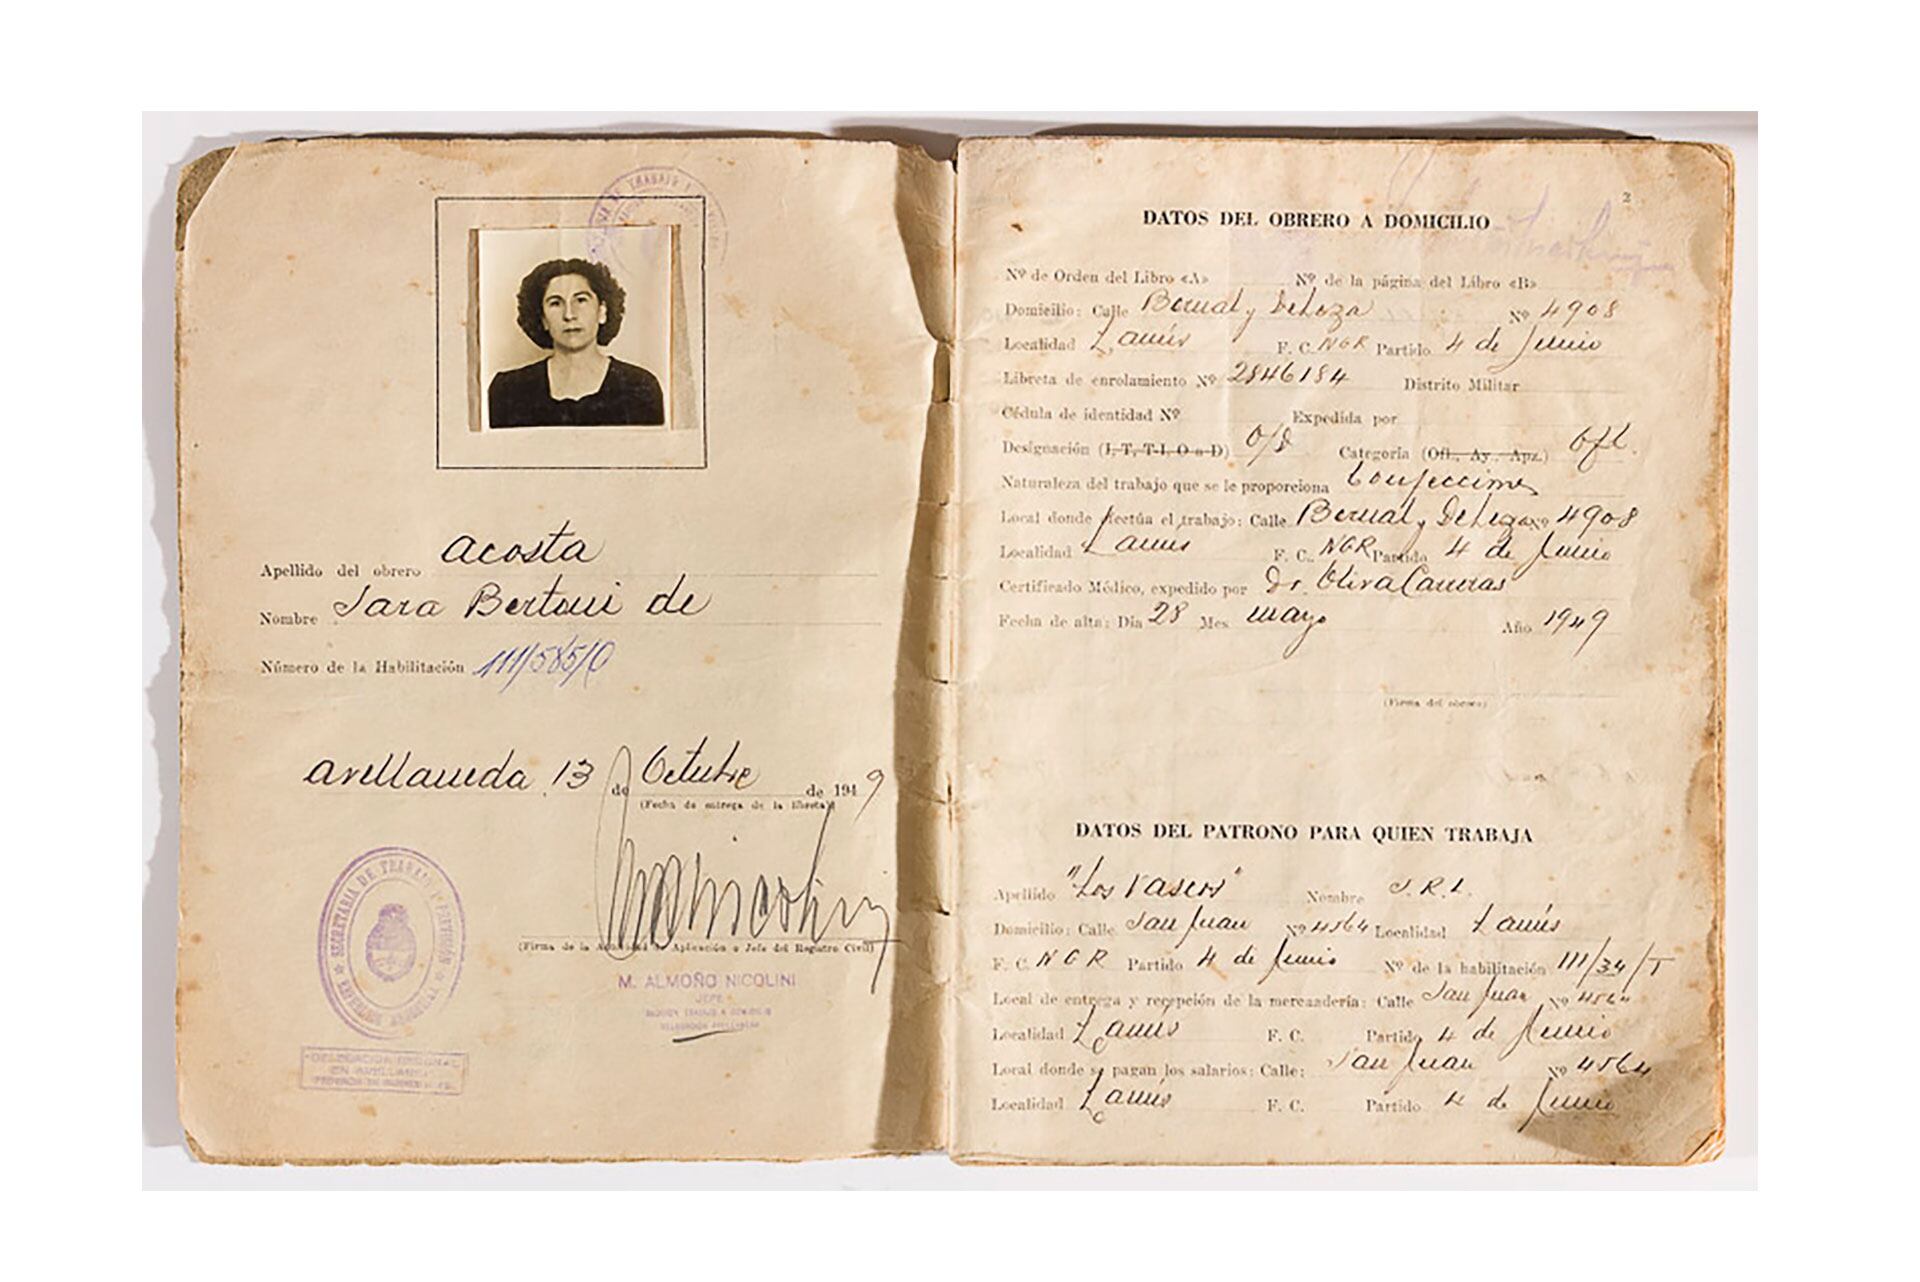 SECRETARIA DE TRABAJO Y
Apellido del obrero Acosta
Nombre Sara Bertoni de
Número de la Habilitación 111/585/O
Avellaneda 13 de Octubre de 1949
(Fecha de entrega de la libreta)
(Firma de la Autoridad de Aplicación o Jefe del Registro Civil)
M. ALMOÑO NICOLINI
JEFE
SECCION TRABAJO A DOMICILIO
DELEGACION AVELLANEDA
SECRETARIA DE TRABAJO Y PREVISIÓN
DELEGACION REGIONAL
EN AVELLANEDA
2
DATOS DEL OBRERO A DOMICILIO
Nº de Orden del Libro «A» Nº de la página del Libro «B»
Domicilio: Calle Bernal y Nº 4908
Localidad Lanús F. C. NGR Partido 4 de Junio
Libreta de enrolamiento Nº 2846184 Distrito Militar
Cédula de identidad Nº Expedida por
Designación (I, T, T-I, O o D) O/D Categoría (Ofl., Ay., Apz.) Ofl.
Naturaleza del trabajo que se le proporciona Confecciones
Local donde efectúa el trabajo: Calle Bernal y Nº 4908
Localidad Lanús F. C. NGR Partido 4 de Junio
Certificado Médico, expedido por Dr. Oliva Carreras
Fecha de alta: Día 28 Mes mayo Año 1949
(Firma del obrero)
DATOS DEL PATRONO PARA QUIEN TRABAJA
Apellido "Los Vascos" Nombre S.R.L.
Domicilio: Calle San Juan Nº 4564 Localidad Lanús
F. C. NGR Partido 4 de Junio Nº de la habilitación 111/34/T
Local de entrega y recepción de la mercadería: Calle San Juan Nº 4564
Localidad Lanús F. C. Partido 4 de Junio
Local donde se pagan los salarios: Calle: San Juan Nº 4564
Localidad Lanús F. C. Partido 4 de Junio